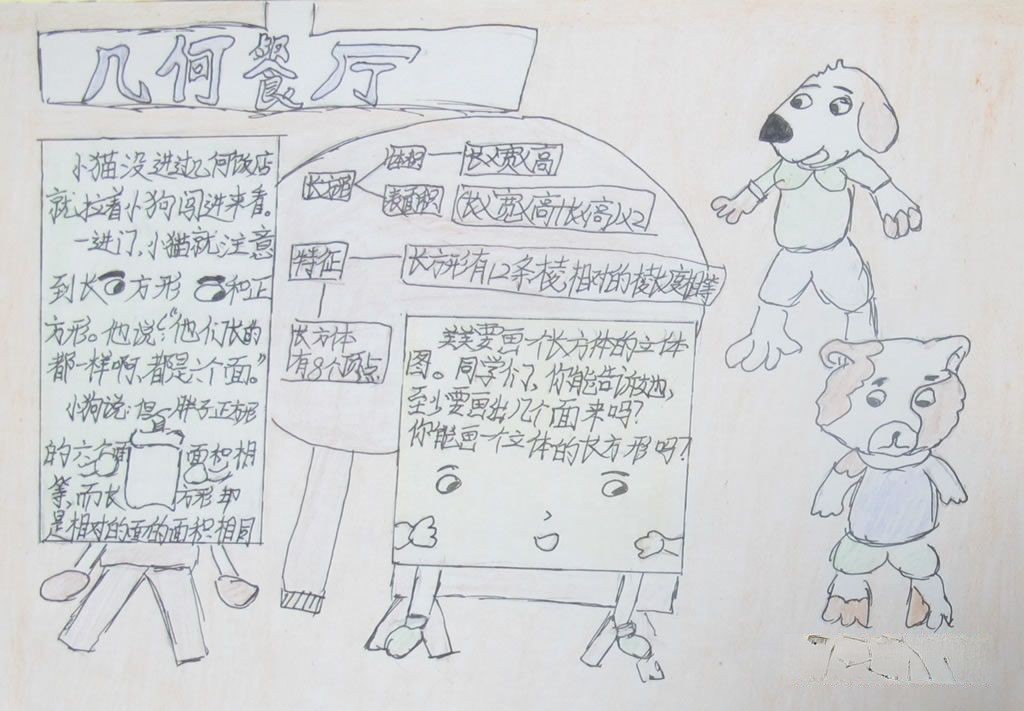 几何餐厅
小猫没进过几何饭店
就拉着小狗闯进来看。
一进门,小猫就注意
到长方形和正
方形。他说:“他们长的
都一样啊,都是六个面。”
小狗说:但胖子正方形
的六个面面积相
等,而长方形却
是相对的面的面积相同
体积
长X宽X高
表面积
特征
长方形有12条棱,相对的棱长度相等
长方体
有8个
笑笑要画一个长方体的立体
图。同学们,你能告诉她,
至少要画出几个面来吗?
你能画一个立体的长方形吗?